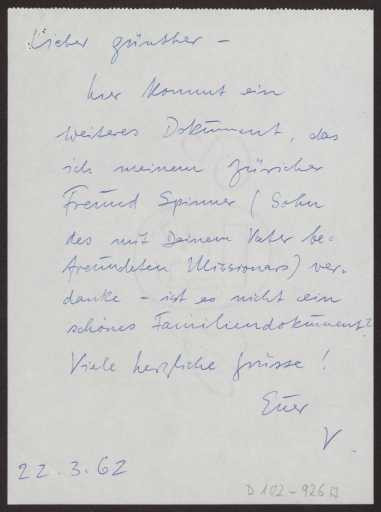 Lieber Günther –
hier kommt ein
weiteres Dokument, das
ich meinem Züricher
Freund Spinner (Sohn
des mit Deinem Vater be-
freundeten Missionars) ver-
danke – ist es nicht ein
schönes Familiendokument?
Viele herzliche Grüsse!
Euer
V.
22.3.62
D 102-926